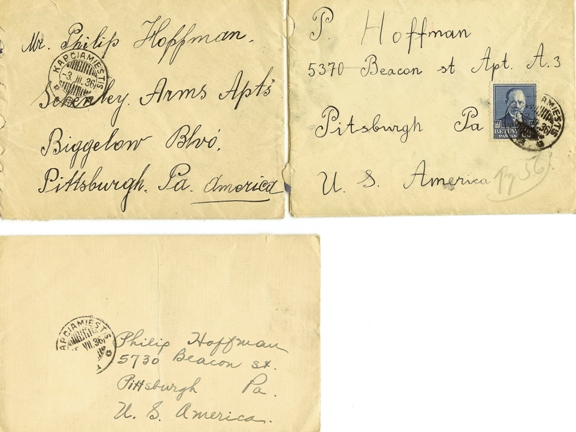 Mr. Philip Hoffman.
KAPCIAMIESTIS
-3. III. 36
Schenley. Arms Apts
Biggelow Blvd.
Pittsburgh. Pa. America
P. Hoffman
5370 Beacon st Apt. A.3
Pitsburgh Pa
LIETUVA
AMIESTIS
U. S. America
APCIAMIESTIS
VII. 36
Philip Hoffman
5730 Beacon st.
Pittsburgh Pa.
U. S. America.